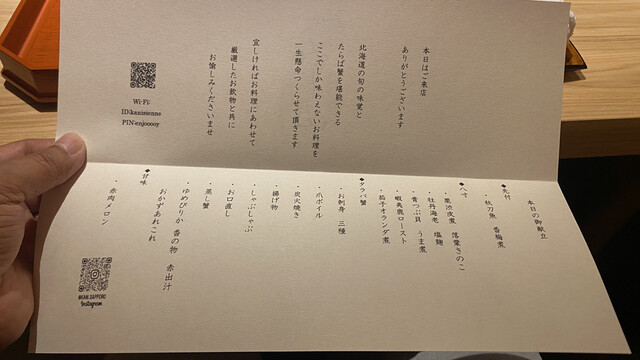 本日はご来店
ありがとうございます
北海道の旬の味覚と
たらば蟹を堪能できる
ここでしか味わえないお料理を
一生懸命つくらせて頂きます
宜しければお料理にあわせて
厳選したお飲物と共に
お愉しみくださいませ
Wi-Fi:
ID:kanisienne
PIN:enjooooy
本日の御献立
◆先付
・秋刀魚 香梅煮
◆八寸
・栗渋皮煮 落葉きのこ
・牡丹海老 塩麹
・青つぶ貝 うま煮
・蝦夷鹿ロースト
・茄子オランダ煮
◆タラバ蟹
・お刺身 三種
・爪ボイル
・炭火焼き
・揚げ物
・しゃぶしゃぶ
・お口直し
・蒸し蟹
・ゆめぴりか 香の物 赤出汁
おかずあれこれ
◆甘味
・赤肉メロン
@KANI.SAPPORO
Instagram